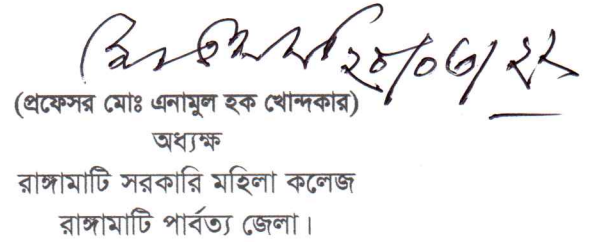 ২৮/০৩/২২
(প্রফেসর মোঃ এনামুল হক খোন্দকার)
অধ্যক্ষ
রাঙ্গামাটি সরকারি মহিলা কলেজ
রাঙ্গামাটি পার্বত্য জেলা।